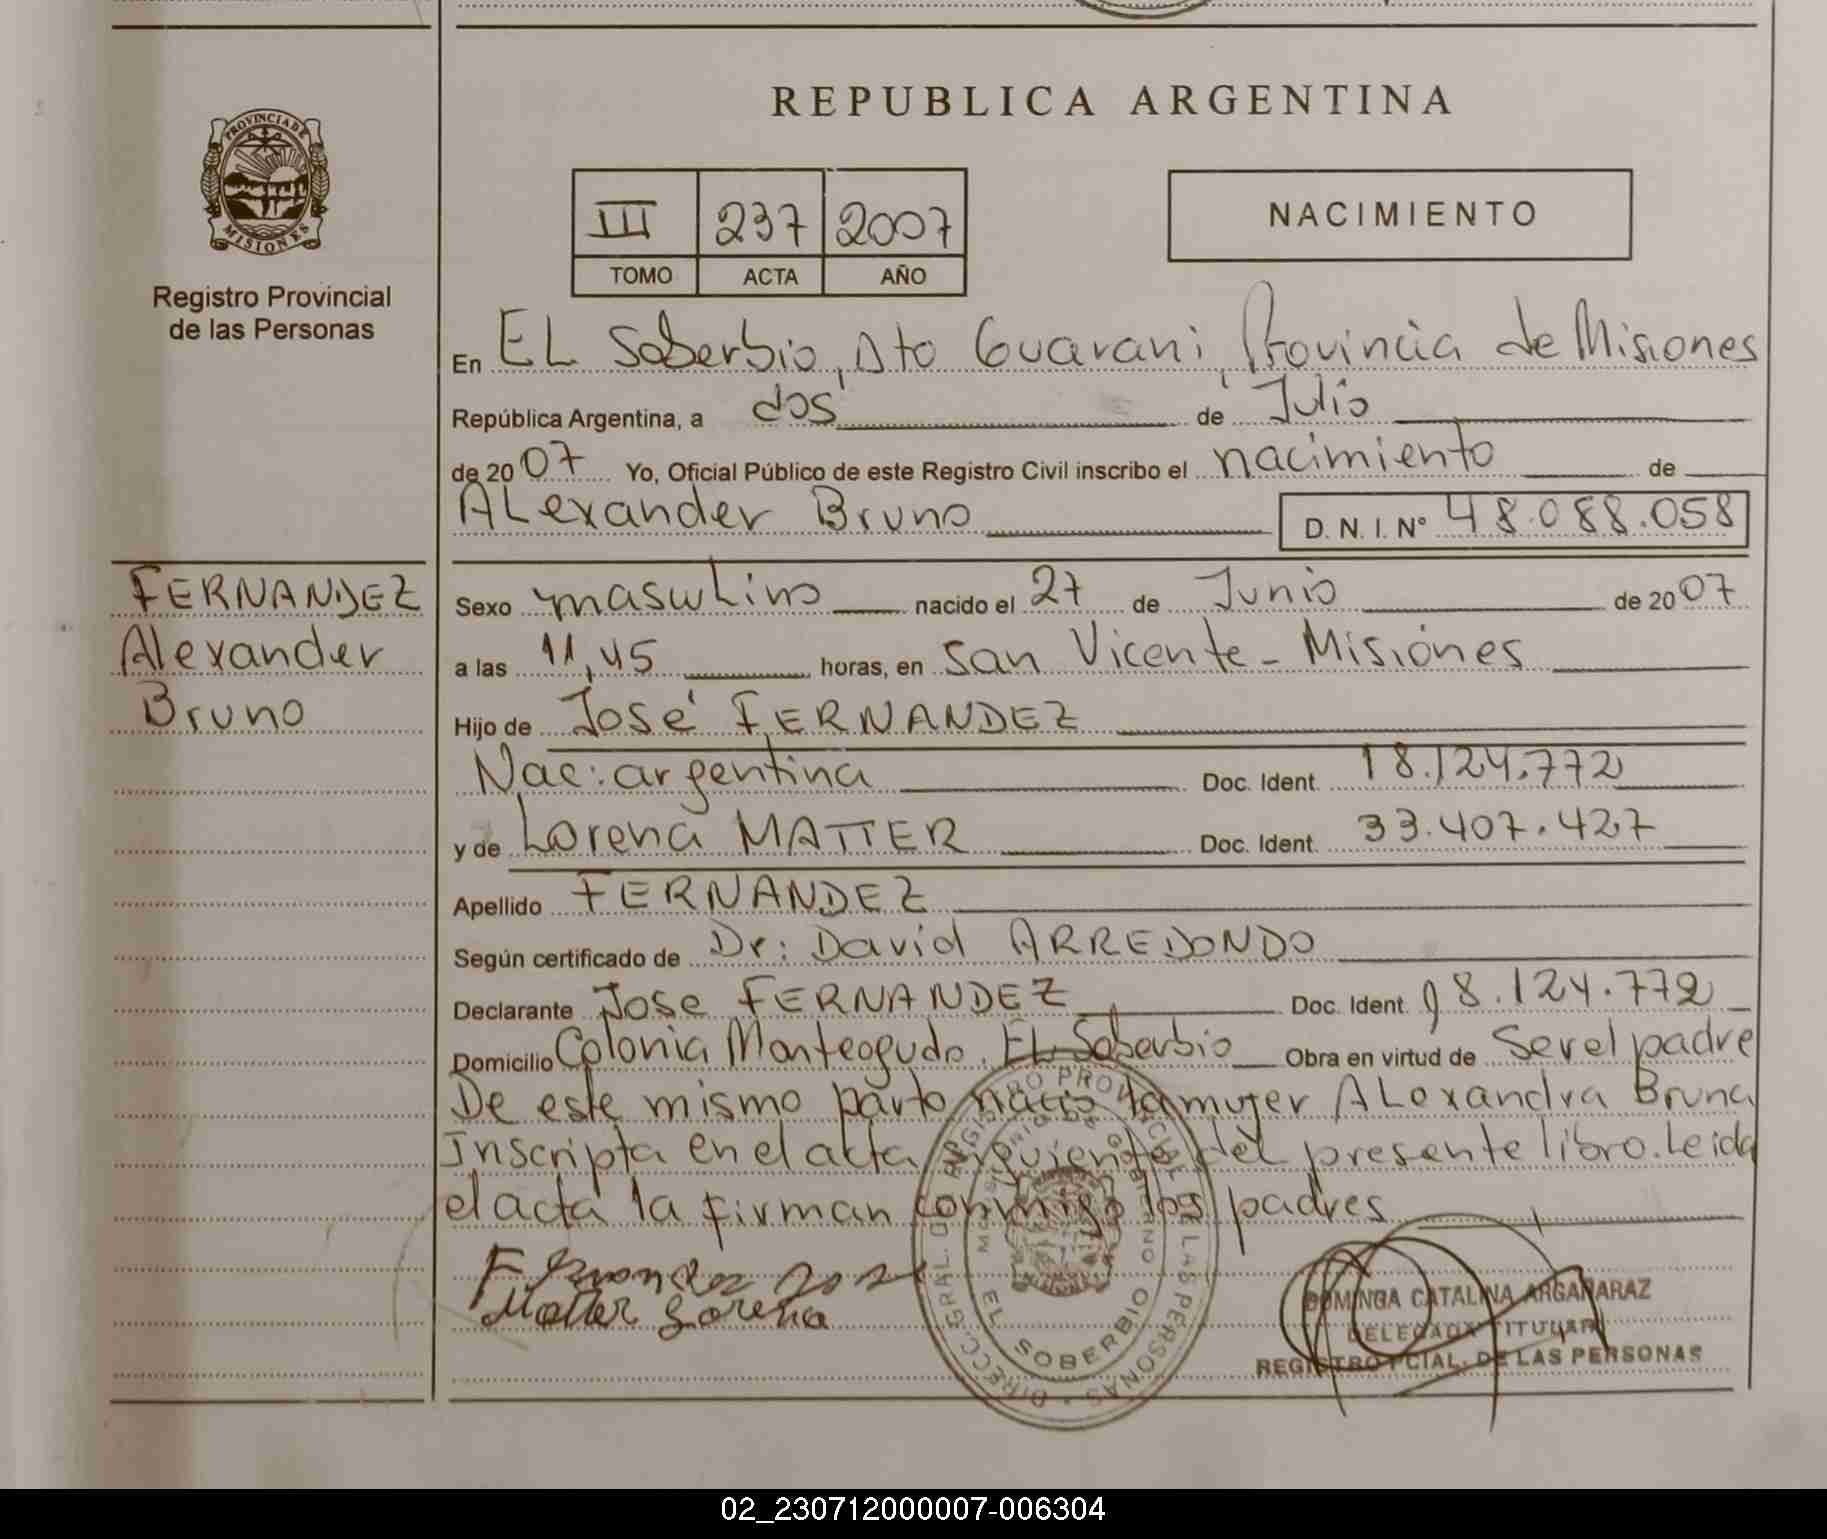 REPUBLICA ARGENTINA
PROVINCIA DE
MISIONES
Registro Provincial
de las Personas
III 237 2007
TOMO ACTA AÑO
NACIMIENTO
En EL Soberbio, Dto Guarani, Provincia de Misiones
República Argentina, a dos de Julio
de 2007 Yo, Oficial Público de este Registro Civil inscribo el nacimiento de
ALexander Bruno D. N. I. N° 48.088.058
FERNANDEZ
Alexander
Bruno
Sexo masculino nacido el 27 de Junio de 2007
a las 11,45 horas, en San Vicente - Misiones
Hijo de José FERNANDEZ
Nac: argentina Doc. Ident. 18.124.772
y de Lorena MATTER Doc. Ident. 33.407.427
Apellido FERNANDEZ
Según certificado de Dr: David ARREDONDO
Declarante Jose FERNANDEZ Doc. Ident. 18.124.772
Domicilio Colonia Monteagudo. EL Soberbio Obra en virtud de Ser el padre
De este mismo parto nacio la mujer ALexandra Bruna
Inscripta en el acta siguiente del presente libro. Leida
el acta la firman conmigo los padres
Fernandez Jose
Matter Lorena
REGISTRO PROVINCIAL DE LAS PERSONAS
DIRECC. GRAL. DEL
EL SOBERBIO
DOMINGA CATALINA ARGAÑARAZ
DELEGADA TITULAR
REGISTRO PCIAL. DE LAS PERSONAS
02_230712000007-006304